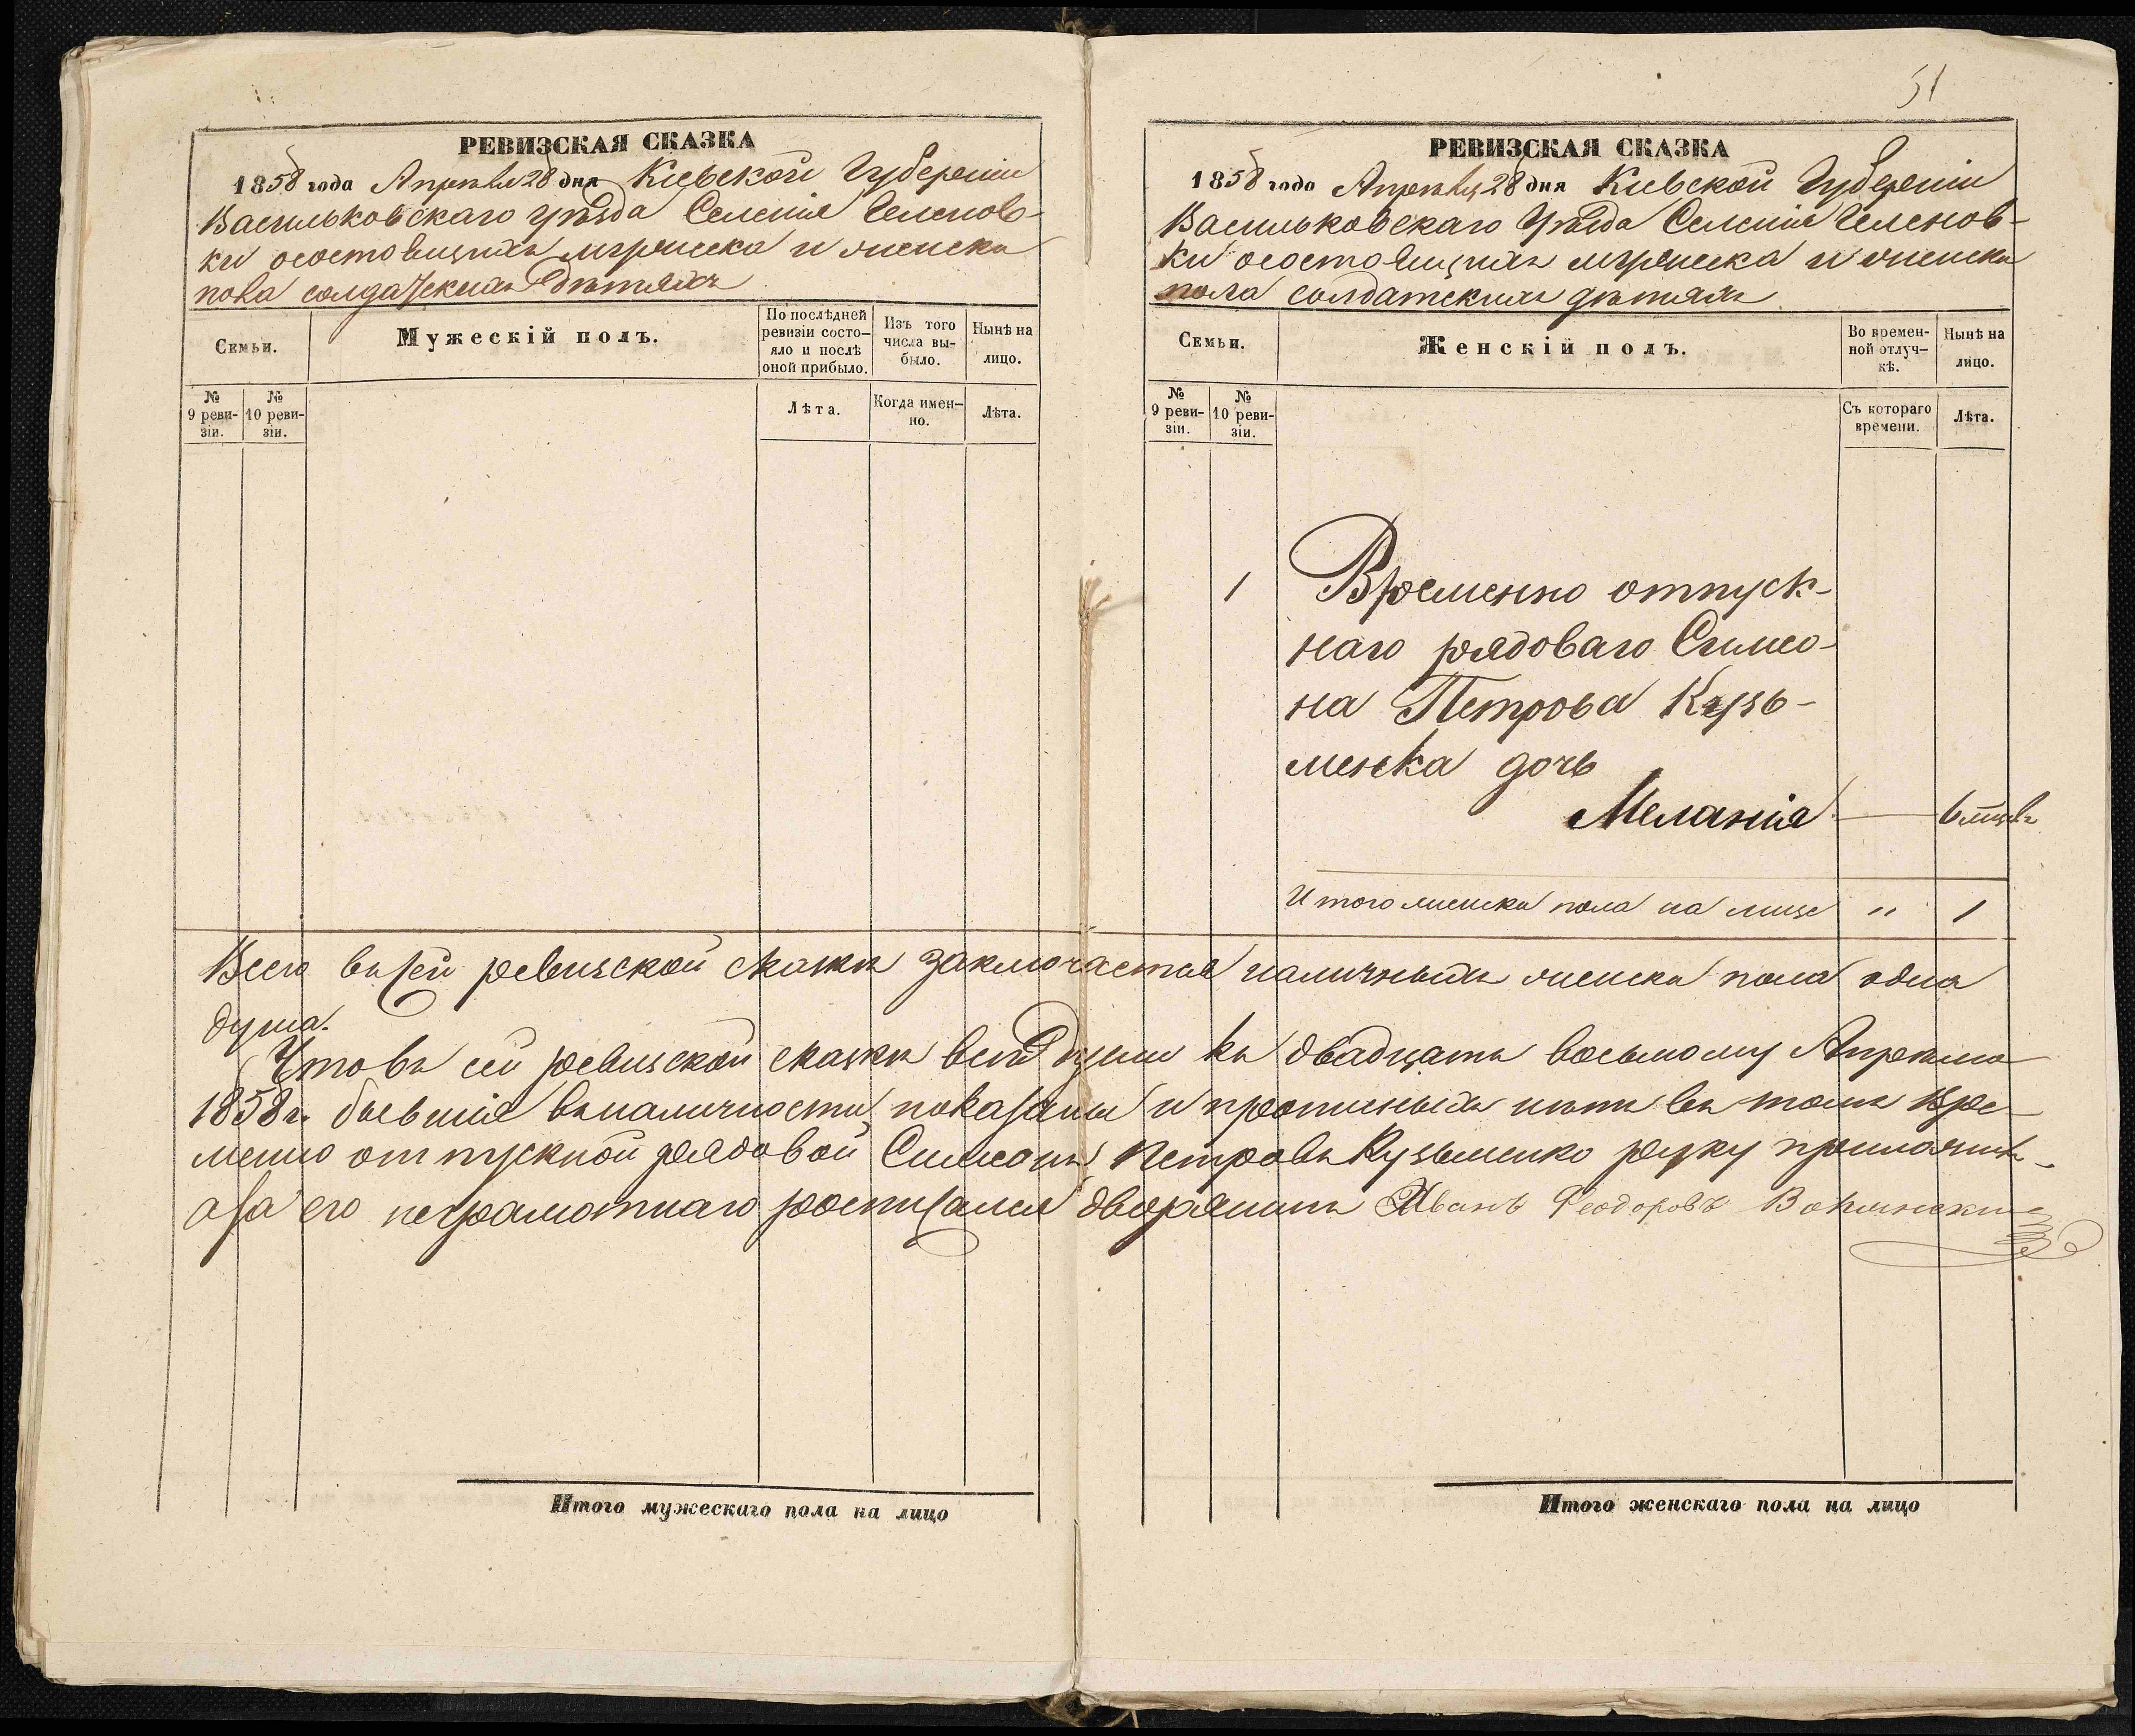 РЕВИЗСКАЯ СКАЗКА
1858 года Апрѣля 28 дня Кіевской Губерніи
Васильковскаго уѣзда Селенія
ки осостоящихъ мужеска и женска
пола солдатскихъ дѣтяхъ
Семьи.
Мужескій полъ.
По послѣдней ревизіи состо-
яло и послѣ оной прибыло.
Изъ того числа вы-
было.
Нынѣ на лицо.
№ 9 реви-
зіи.
№ 10 реви-
зіи.
Лѣта.
Когда имен-
но.
Лѣта.
51
РЕВИЗСКАЯ СКАЗКА
1858 года Апрѣля 28 дня Кіевской Губерніи
Васильковскаго Уѣзда Селенія
ки осостоящихъ мужеска и женска
пола солдатскихъ дѣтяхъ
Семьи.
Женскій полъ.
Во времен-
ной отлуч-
кѣ.
Нынѣ на лицо.
№ 9 реви-
зіи.
№ 10 реви-
зіи.
Съ котораго времени.
Лѣта.
1 Временно отпуск-
наго рядоваго Симео-
на Петрова Кузь-
менка дочь
Меланія 6
Итого женска пола на лице " 1
Всего въ сей ревизской сказкѣ заключается наличныхъ женска пола одна
душа.
Что въ сей ревизской сказкѣ всѣ души къ двадцать восьмому Апрѣля
1858 г. бывшіе въ наличности показаны и прописныхъ нѣтъ въ томъ Вре-
менно отпускной рядовой Симеонъ Петровъ Кузьменко руку приложилъ
а за его неграмотнаго росписался дворянинъ Иванъ Феодоровъ
Итого мужескаго пола на лицо
Итого женскаго пола на лицо